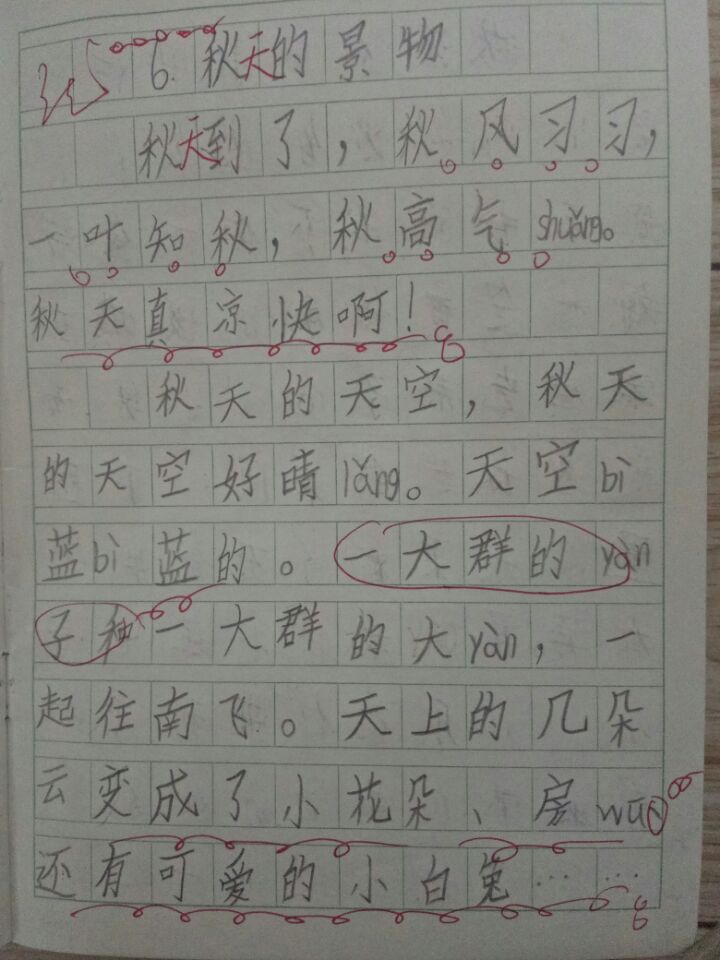 6.秋天的景物
秋天到了，秋风习习，
一叶知秋，秋高气shuǎng。
秋天真凉快啊！
秋天的天空，秋天
的天空好晴lǎng。天空bì
蓝bì蓝的。一大群的yàn
子和一大群的大yàn，一
起往南飞。天上的几朵
云变成了小花朵、房wū
还有可爱的小白兔……